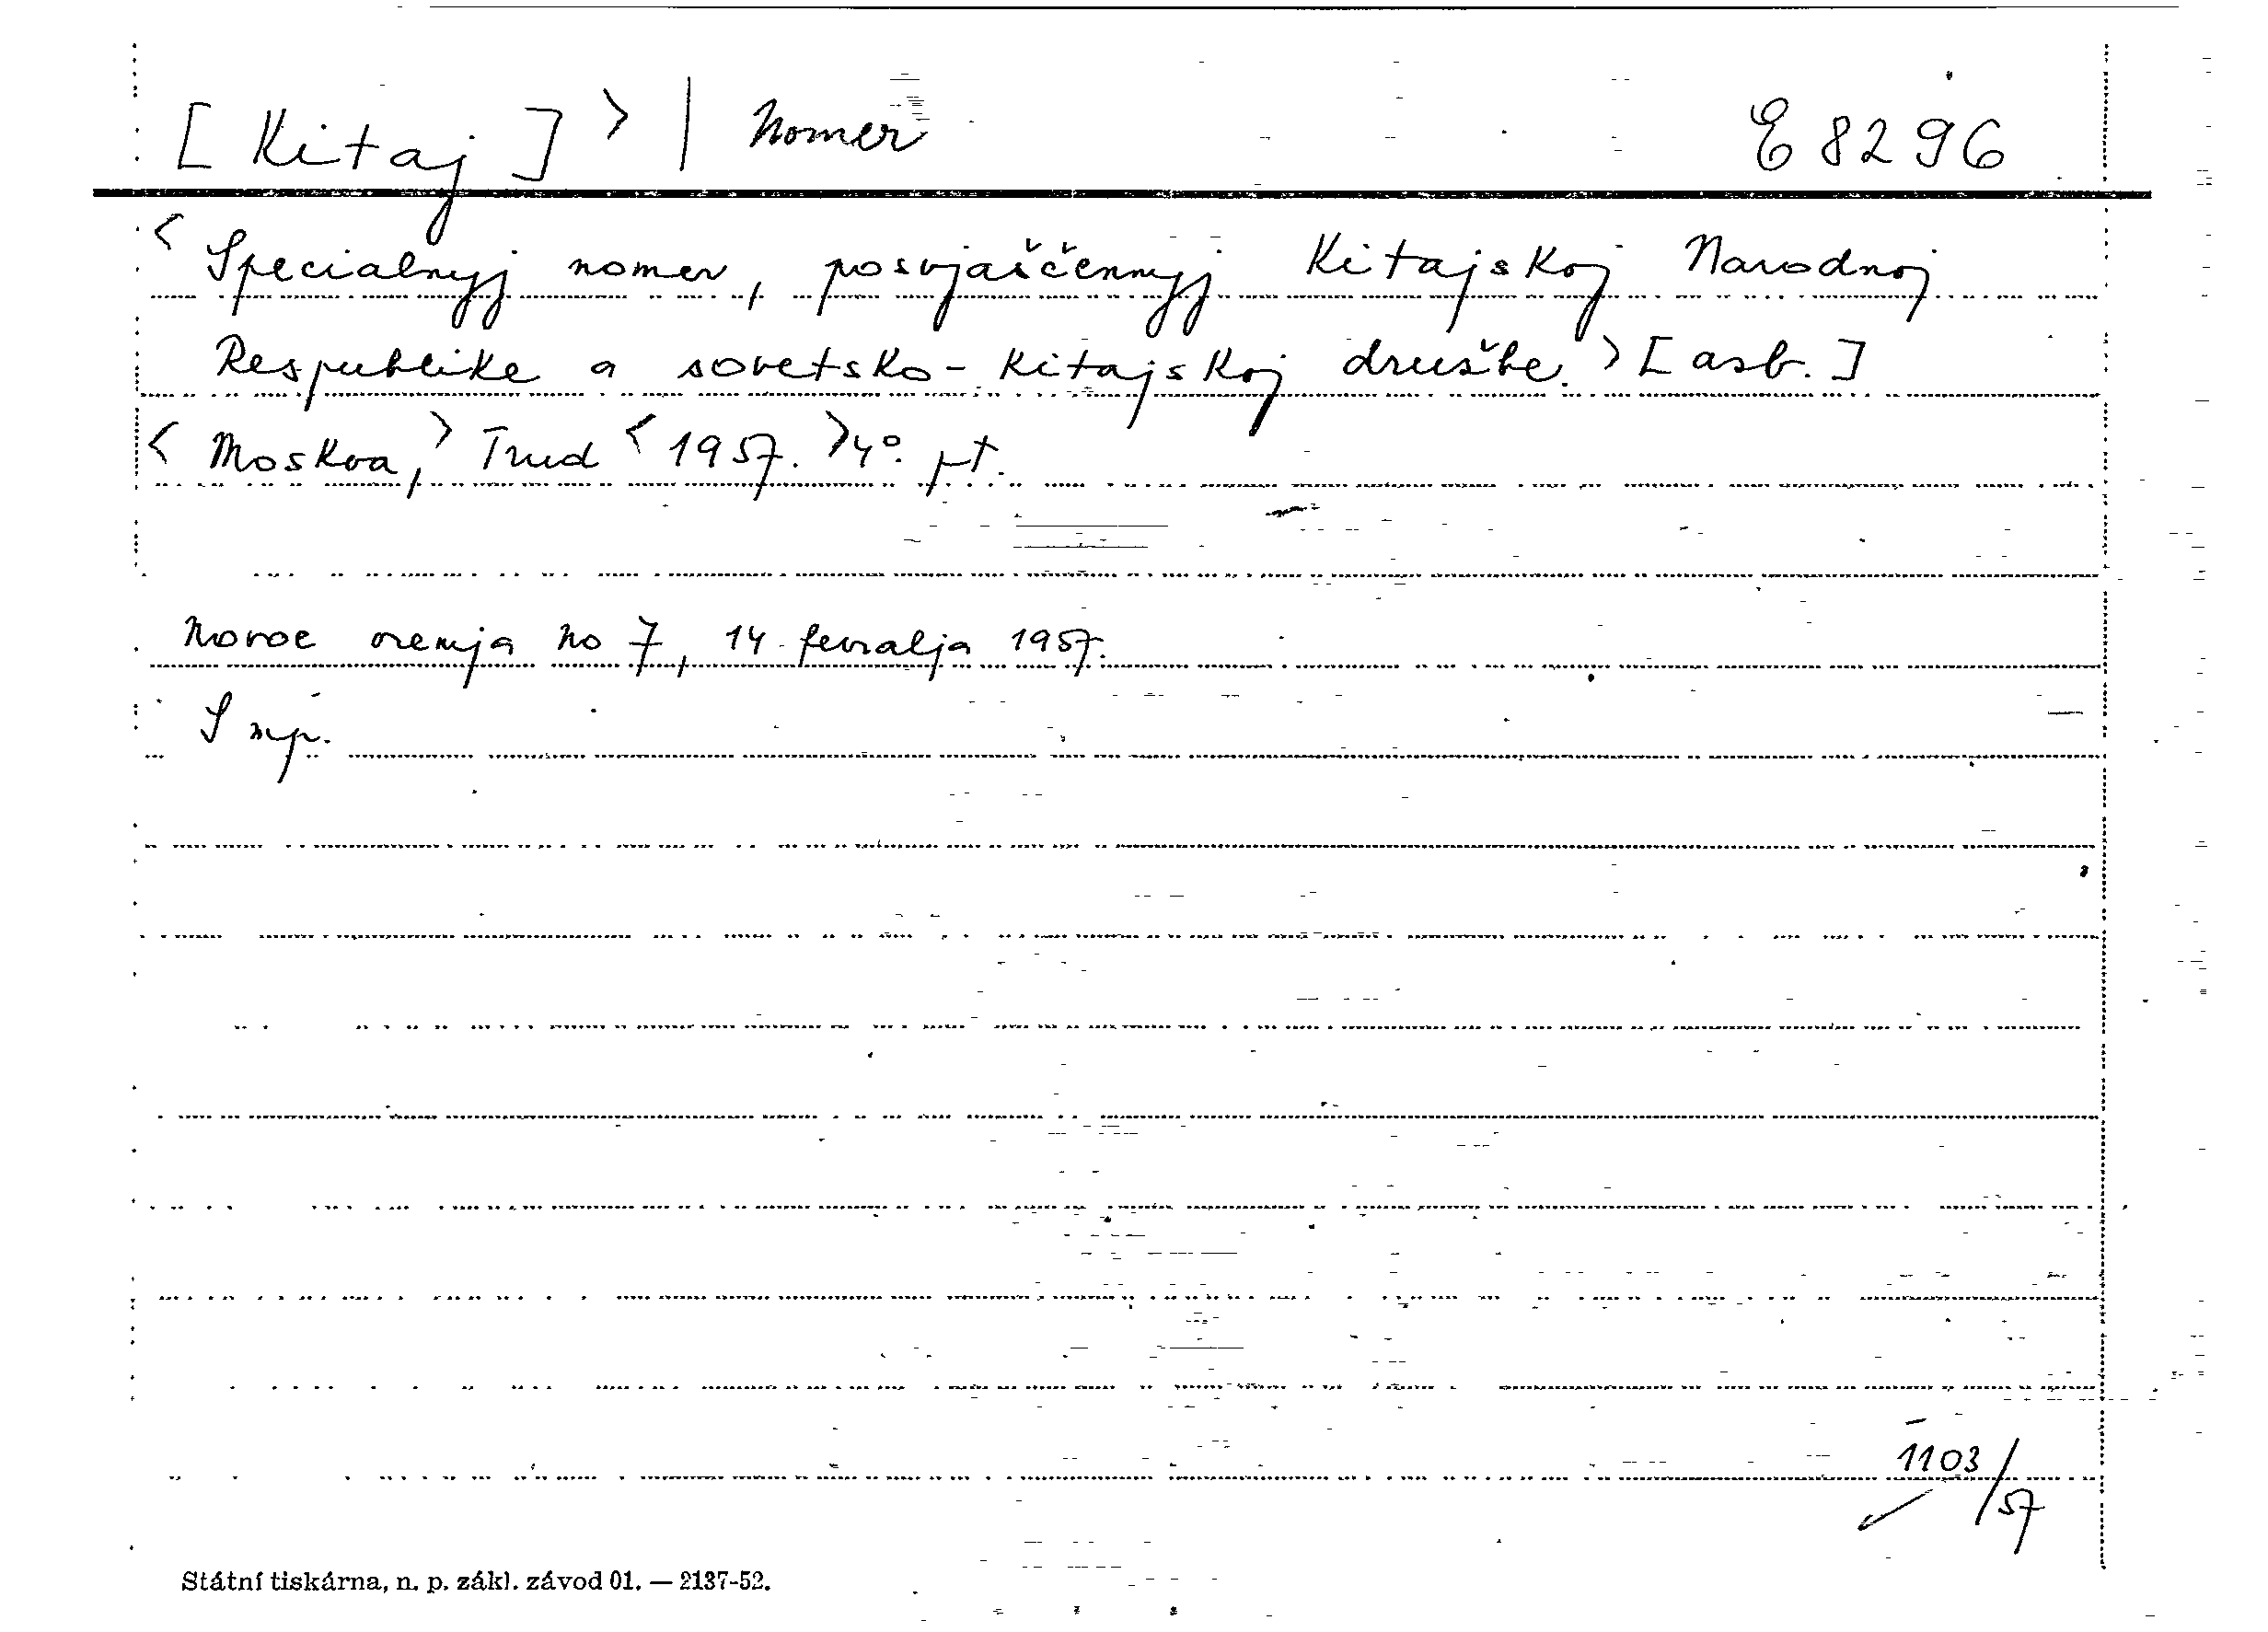 [Kitaj] > | Nomer E 8296
< Specialnyj nomer, posvjaščennyj Kitajskoj Narodnoj
Respublike a sovetsko-kitajskoj družbe. > [asb.]
< Moskva, > Trud < 1957. > 4°. pt.
Novoe vremja No 7, 14 fevralja 1957.
S mp.
1103/57
Státní tiskárna, n. p. zákl. závod 01. — 2137-52.